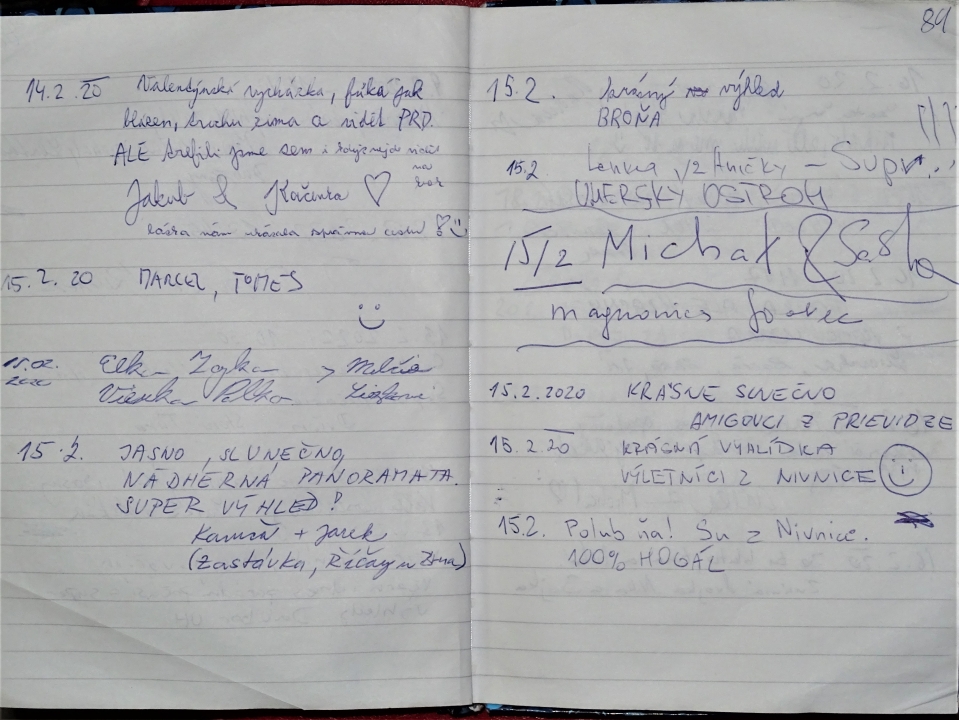 84
14.2.20 Valentýnská vycházka, fúká jak
blázen, trochu zima a vidět PRD.
ALE trefili jsme sem i když nejde vidět
na
Jakub & Kačenka ♡
láska nám ukázala správnou cestu! ☺
15.2.20 MARCEL, TOMEŠ
☺
15.02.
2020
Elka
15.2. JASNO, SLUNEČNO,
NÁDHERNÁ PANORAMATA.
SUPER VÝHLED!
+ Jarek
(Zastávka, Říčany u Brna)
15.2. krásný výhled
BROŇA
15.2 Lenka, 2 Aničky – Supr...
UHERSKÝ OSTROH
15/2 Michal & Saša
15.2.2020 KRÁSNE SLNEČNO
AMIGOVCI Z PRIEVIDZE
15.2.20 KRÁSNÁ VYHLÍDKA
VÝLETNÍCI Z NIVNICE ☺
15.2. Polub ňa! Su z Nivnice.
100% HOGÁL